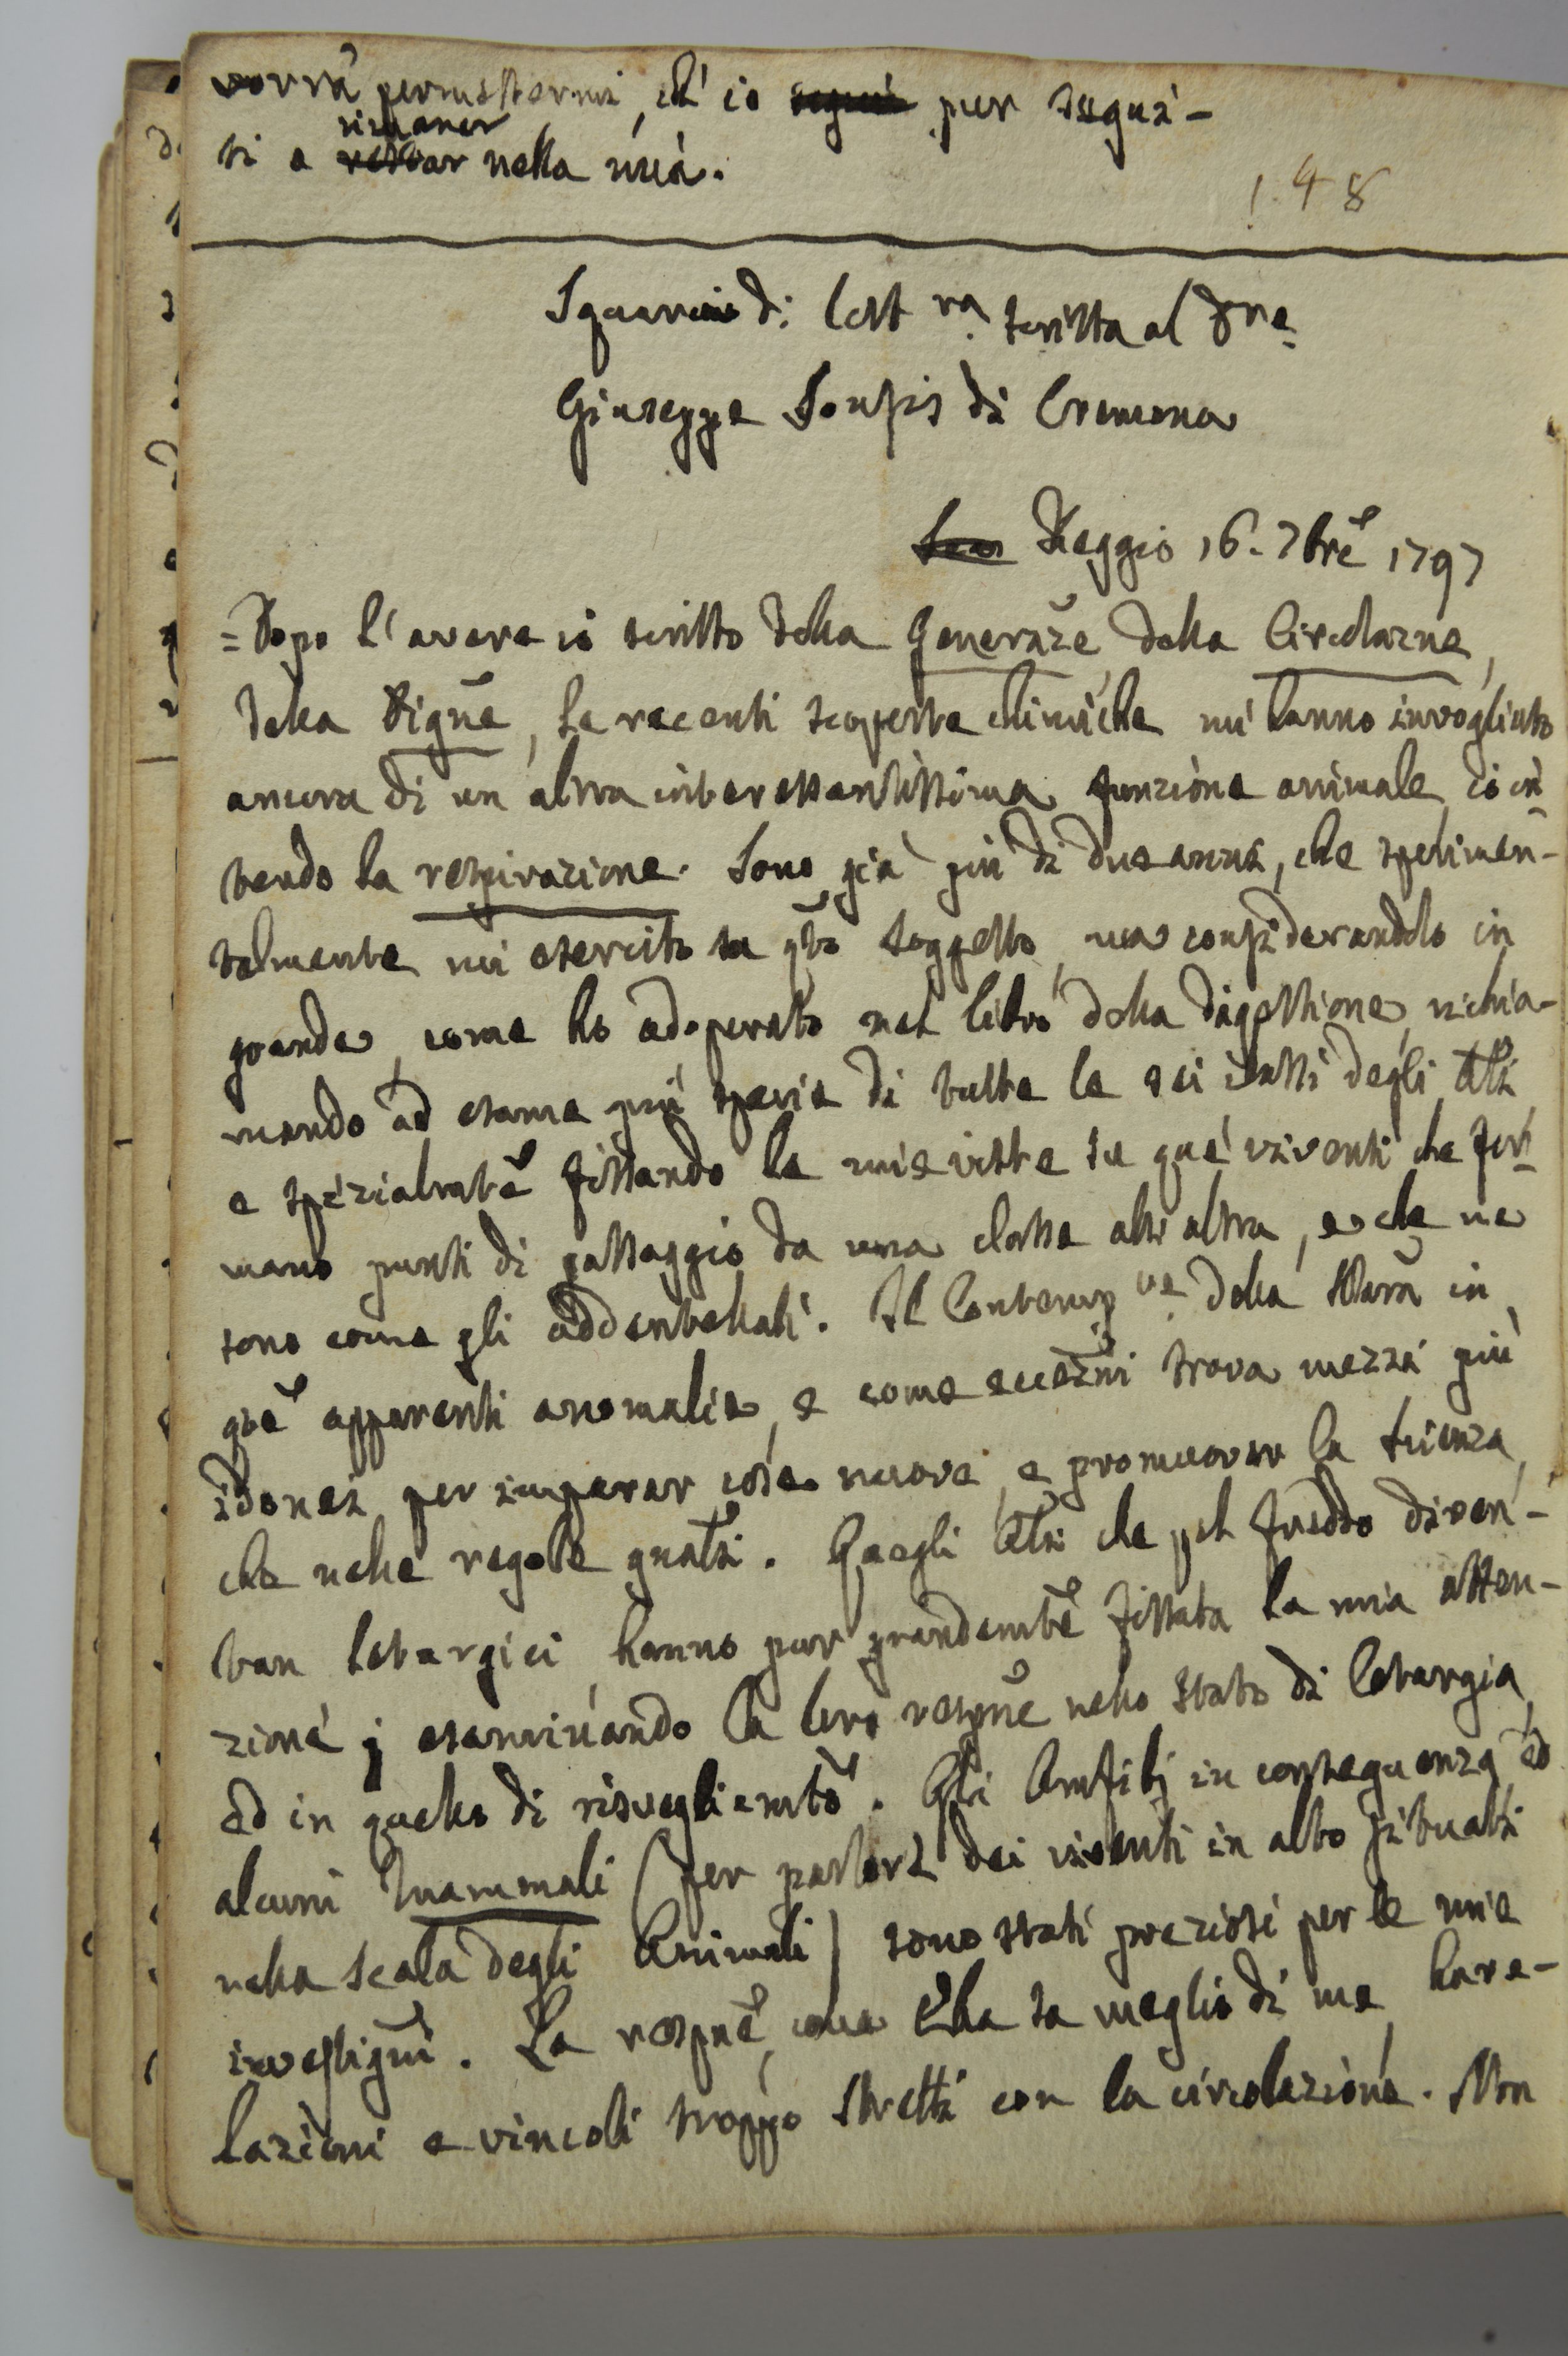 vorrà permettermi, ch' io seguii per segui-
ti a restar rimaner nella mia.
148
Squarcio di lettra. scritta al Dre.
Giuseppe Sonsis di Cremona
Reggio 16. 7bre 1797
= Dopo l'avere io scritto della Generaze, della Circolazne,
della Digne, le recenti scoperte chimiche mi hanno invogliato
ancora di un altra interessantissima funzione animale, io in
tendo la respirazione. Sono già più di due anni, che sperimen-
talmente mi esercito su qto soggetto, ma considerandolo in
grande, come ho adoperato nel libro della digestione, richia-
mando ad esame più specie di tutte le sei classi degli Ali
e spezialmte fissando le mie viste su que' viventi che for-
mano punti di passaggio da una classe all' altra, e che ne
sono come gli addentellati. Il Contempve. della Nara in
qte apparenti anomalie, e come eccezni trova mezzi più
idonei per imparar cose nuove, e promuover la scienza,
che nelle regole gnali. Quegli Ali che pel freddo diven-
tan letargici, hanno pur grandemte fissata la mia atten-
zione; esaminando la loro respne nello stato di letargia,
ed in quello di risvegliamto. Gli Amfibj in conseguenza, ed
alcuni Mammali (per parlare dei viventi in alto situati
nella scala degli Animali) sono stati preziosi per le mie
investigni. La respne, come Ella sa meglio di me, ha re-
lazioni e vincoli troppo stretti con la circolazione. Non